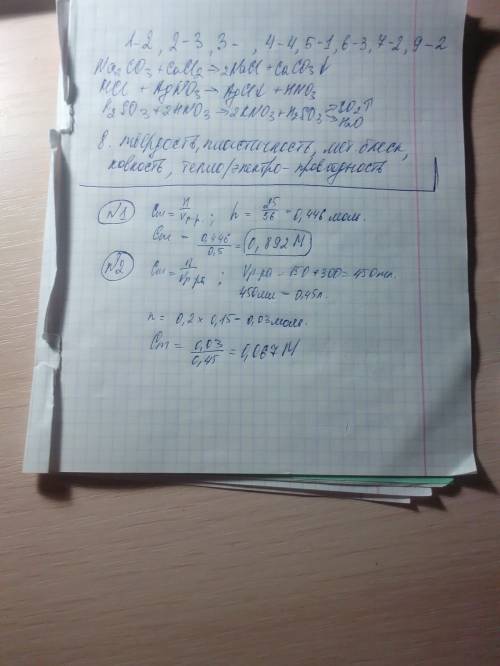 1-2, 2-3, 3- , 4-4, 5-1, 6-3, 7-2, 9-2
Na₂CO₃ + CaCl₂ → 2NaCl + CaCO₃↓
HCl + AgNO₃ → AgCl↓ + HNO₃
K₂SO₃ + 2HNO₃ → 2KNO₃ + H₂SO₃ → SO₂↑
→ H₂O
8. твёрдость, пластичность, мет блеск,
ковкость, тепло/электро-проводность
№1 Cm = n/Vр.р.; n = 25/56 = 0,446 мол.
Cm = 0,446/0,5 = 0,892 M
№2 Cm = n/Vр ра; Vр-ра = 150 + 300 = 450 мл.
450 мл = 0,45 л.
n = 0,2 × 0,15 = 0,03 мол.
Cm = 0,03/0,45 = 0,067 M